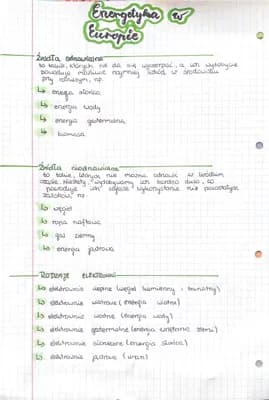 Energetyka w
Europie
Źródła odnawialne
to takie, których nie da się wyczerpać, a ich wykorzystanie
powoduje możliwie najmniej szkód w środowisku
przyrodniczym, np.
↳ energia słońca
↳ energia wody
↳ energia geotermalna
↳ biomasa
Źródła nieodnawialne
to takie, których nie można odnowić w krótkim
czasie. Niestety, wydobywamy ich bardzo dużo, co
powoduje ich wykorzystanie nie powstałych
zasobów, np.
↳ węgiel
↳ ropa naftowa
↳ gaz ziemny
↳ energia jądrowa
RODZAJE ELEKTROWNI
↳ elektrownie cieplne (węgiel kamienny i brunatny)
↳ elektrownie wiatrowe (energia wiatru)
↳ elektrownie wodne (energia wody)
↳ elektrownie geotermalne (energia wnętrza ziemi)
↳ elektrownie słoneczne (energia słońca)
↳ elektrownie jądrowe (uran)